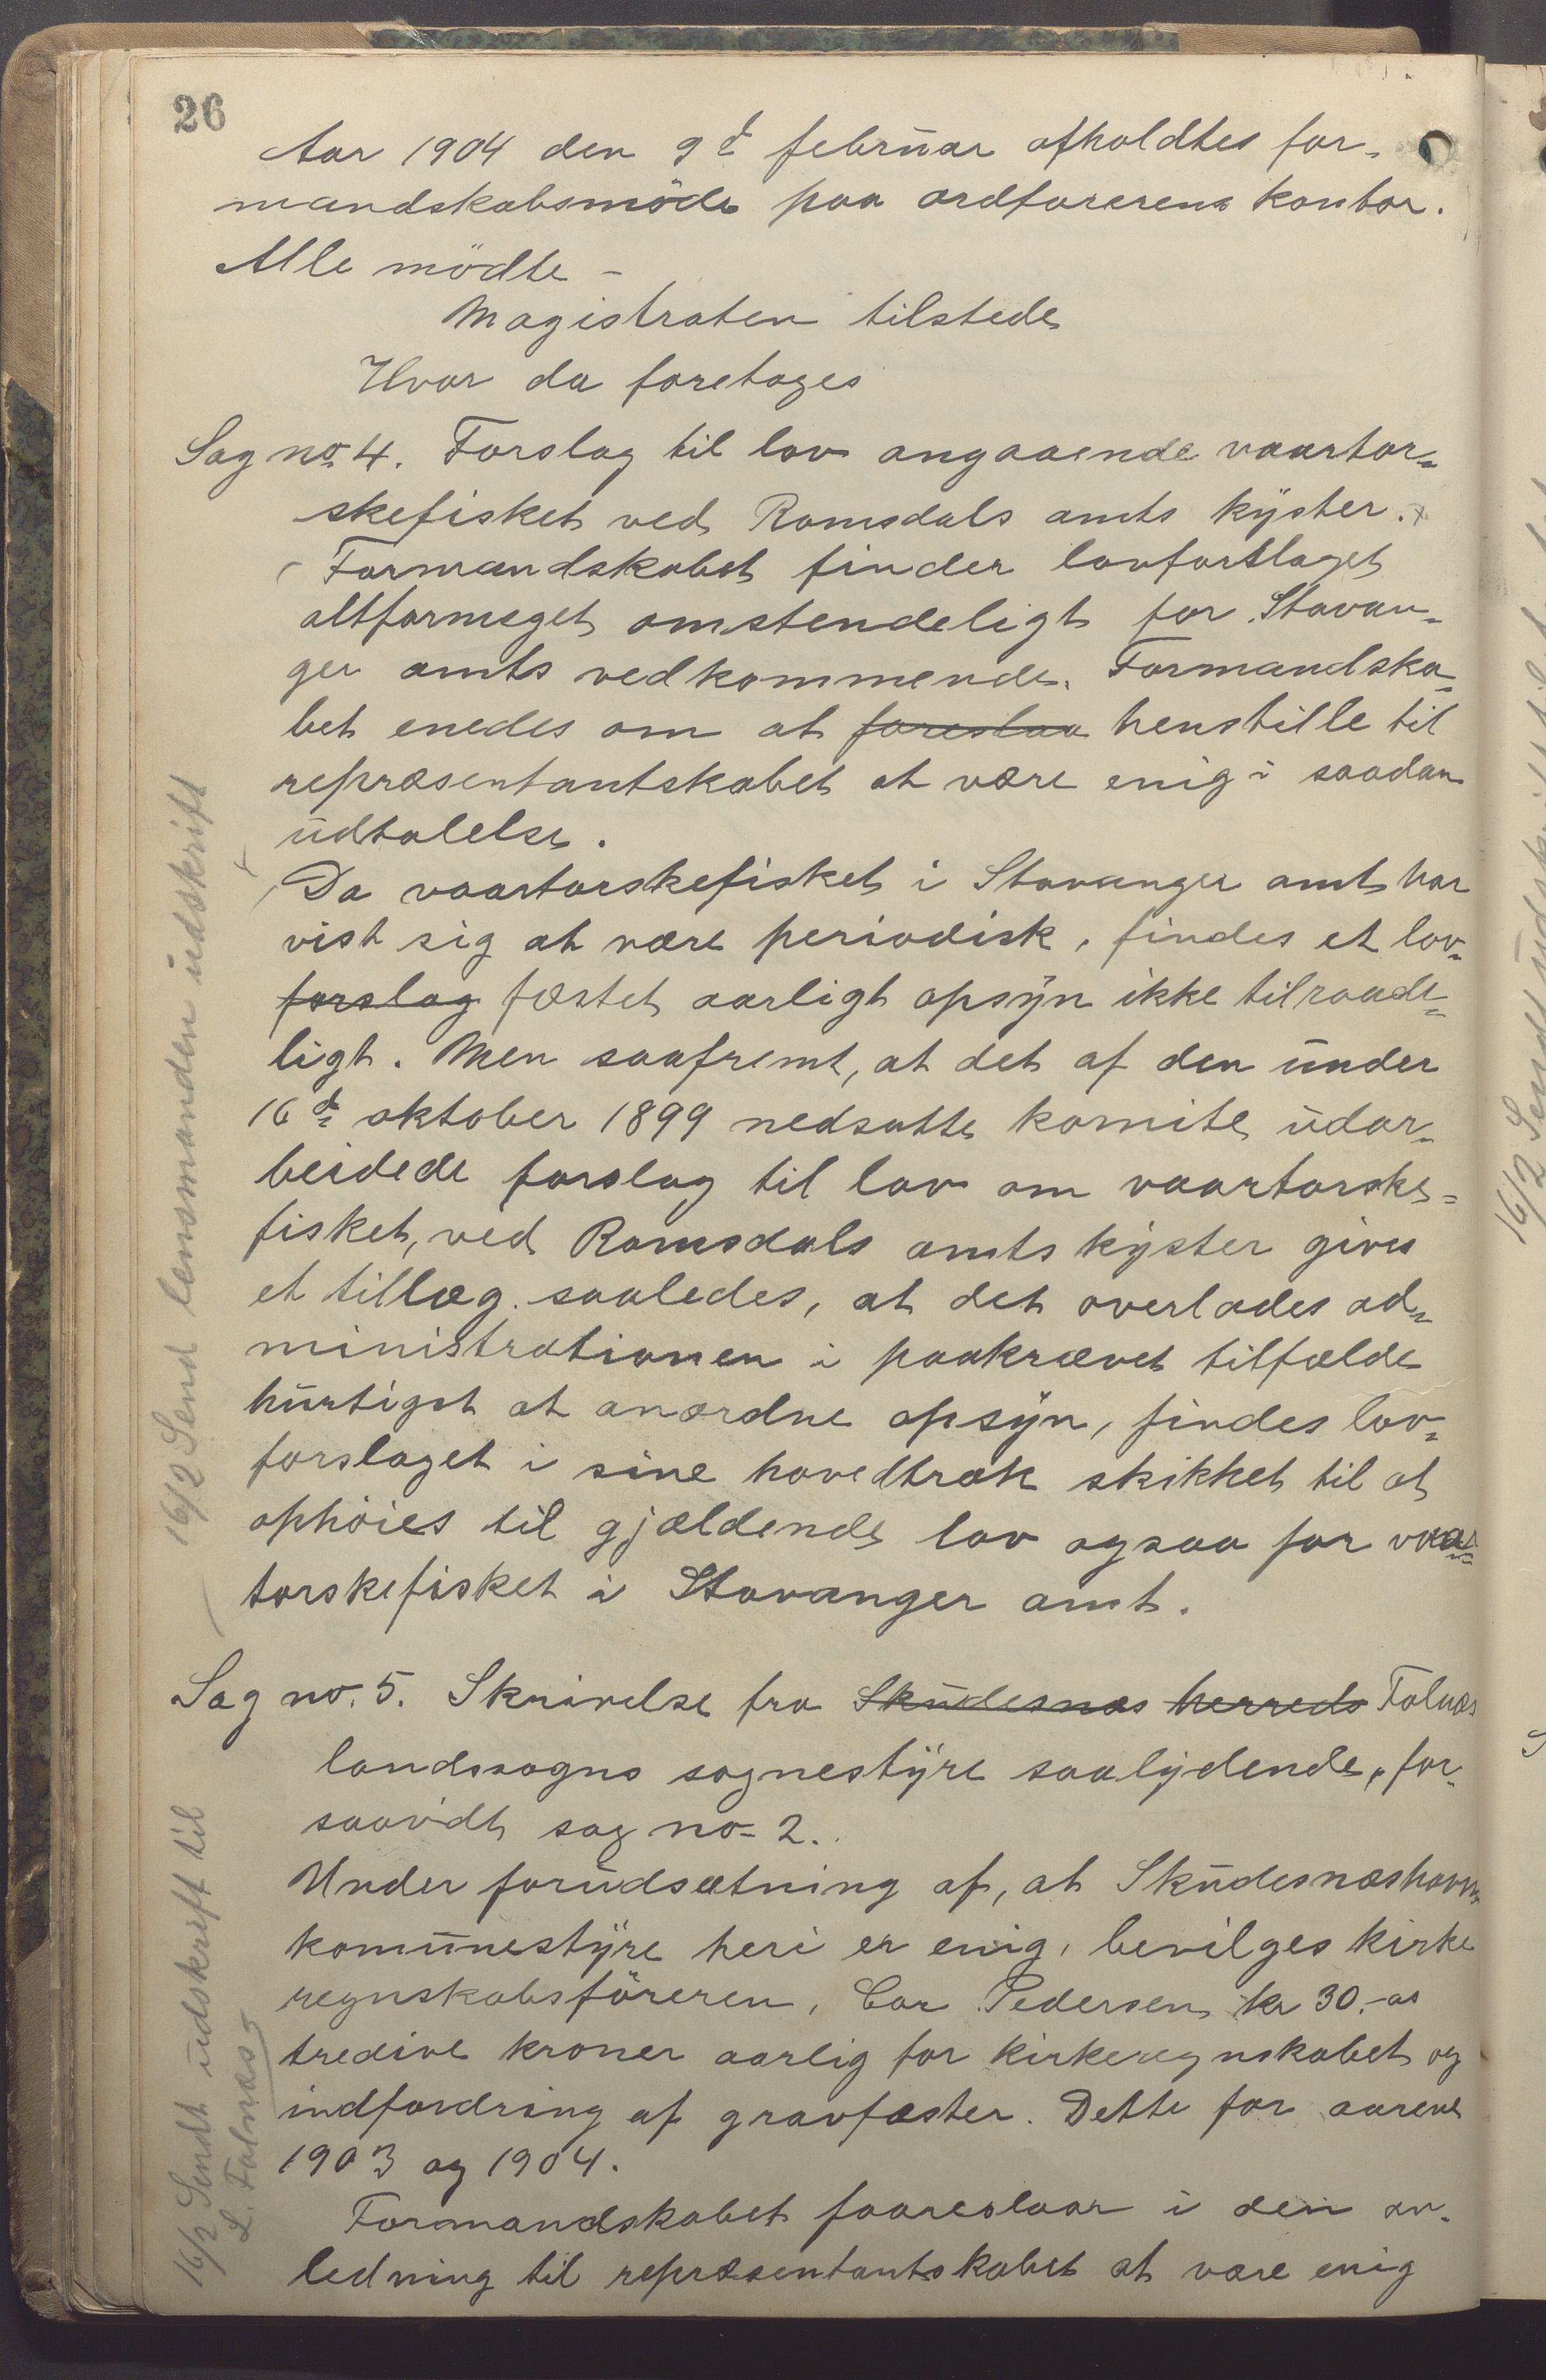 26
Aar 1904 den 9d februar afholdtes for-
mandskabsmöde paa ordførerens kontor.
Alle mödte –
Magistraten tilstede
Hvor da foretoges
Sag no 4. Forslag til lov angaaende vaartor-
skefisket ved Romsdals amts kyster.
Formandskabet finder lovforslaget
altformeget omstendeligt for Stavan-
ger amts vedkommende. Formandska-
bet enedes om at foreslaa henstille til
repræsentantskabet at være enig i saadan
udtalelse.
Da vaartorskefisket i Stavanger amt har
vist sig at være periodisk, findes et lov-
forslag fæstet aarligt opsyn ikke tilraade-
ligt. Men saafremt, at det af den under
16d oktober 1899 nedsatte komite udar-
beidede forslag til lov om vaartorske-
fisket, ved Romsdals amts kyster gives
et tillæg saaledes, at det overlades ad-
ministrationen i paakrævet tilfælde
hurtigst at anordne opsyn, findes lov-
forslaget i sine hovedtræk skikket til at
ophöies til gjældende lov ogsaa for vaar-
torskefisket i Stavanger amt.
16/2 Send lensmanden udskrift
Sag no. 5. Skrivelse fra Skudesnæs herreds Falnæs
landssogns sognestyre saalydende, for-
saavidt sag no 2.
Under forudsætning af, at Skudesneshavn
komunestyre heri er enig, bevilges kirke
regnskabsföreren, Car Pedersen kr 30.-as
tredive kroner aarlig for kirkeregnskabet og
indfordring af gravfæster. Dette for aarene
1903 og 1904.
Formandskabet faareslaar i den an-
ledning til repræsentantskabet at være enig
16/2 Sendt udskrift til
L. Falnæs